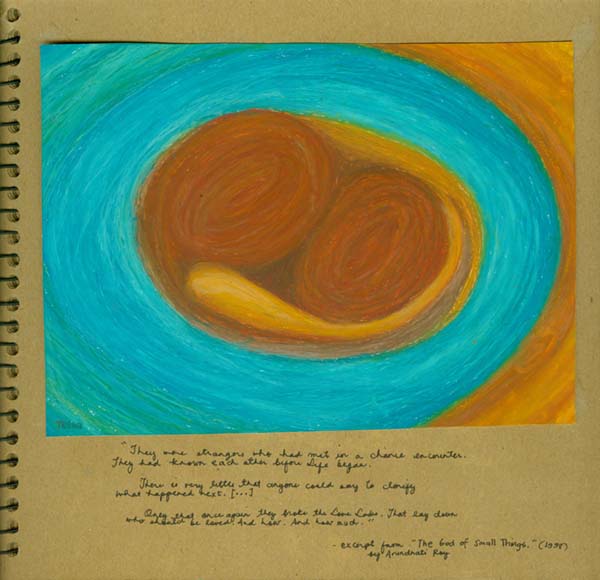 "They were strangers who had met in a chance encounter.
They had known each other before Life began.
There is very little that anyone could say to clarify
what happened next. [...]
Only that once again they broke the Love Laws. That lay down
who should be loved. And how. And how much."
- excerpt from "The God of Small Things." (1998)
by Arundhati Roy